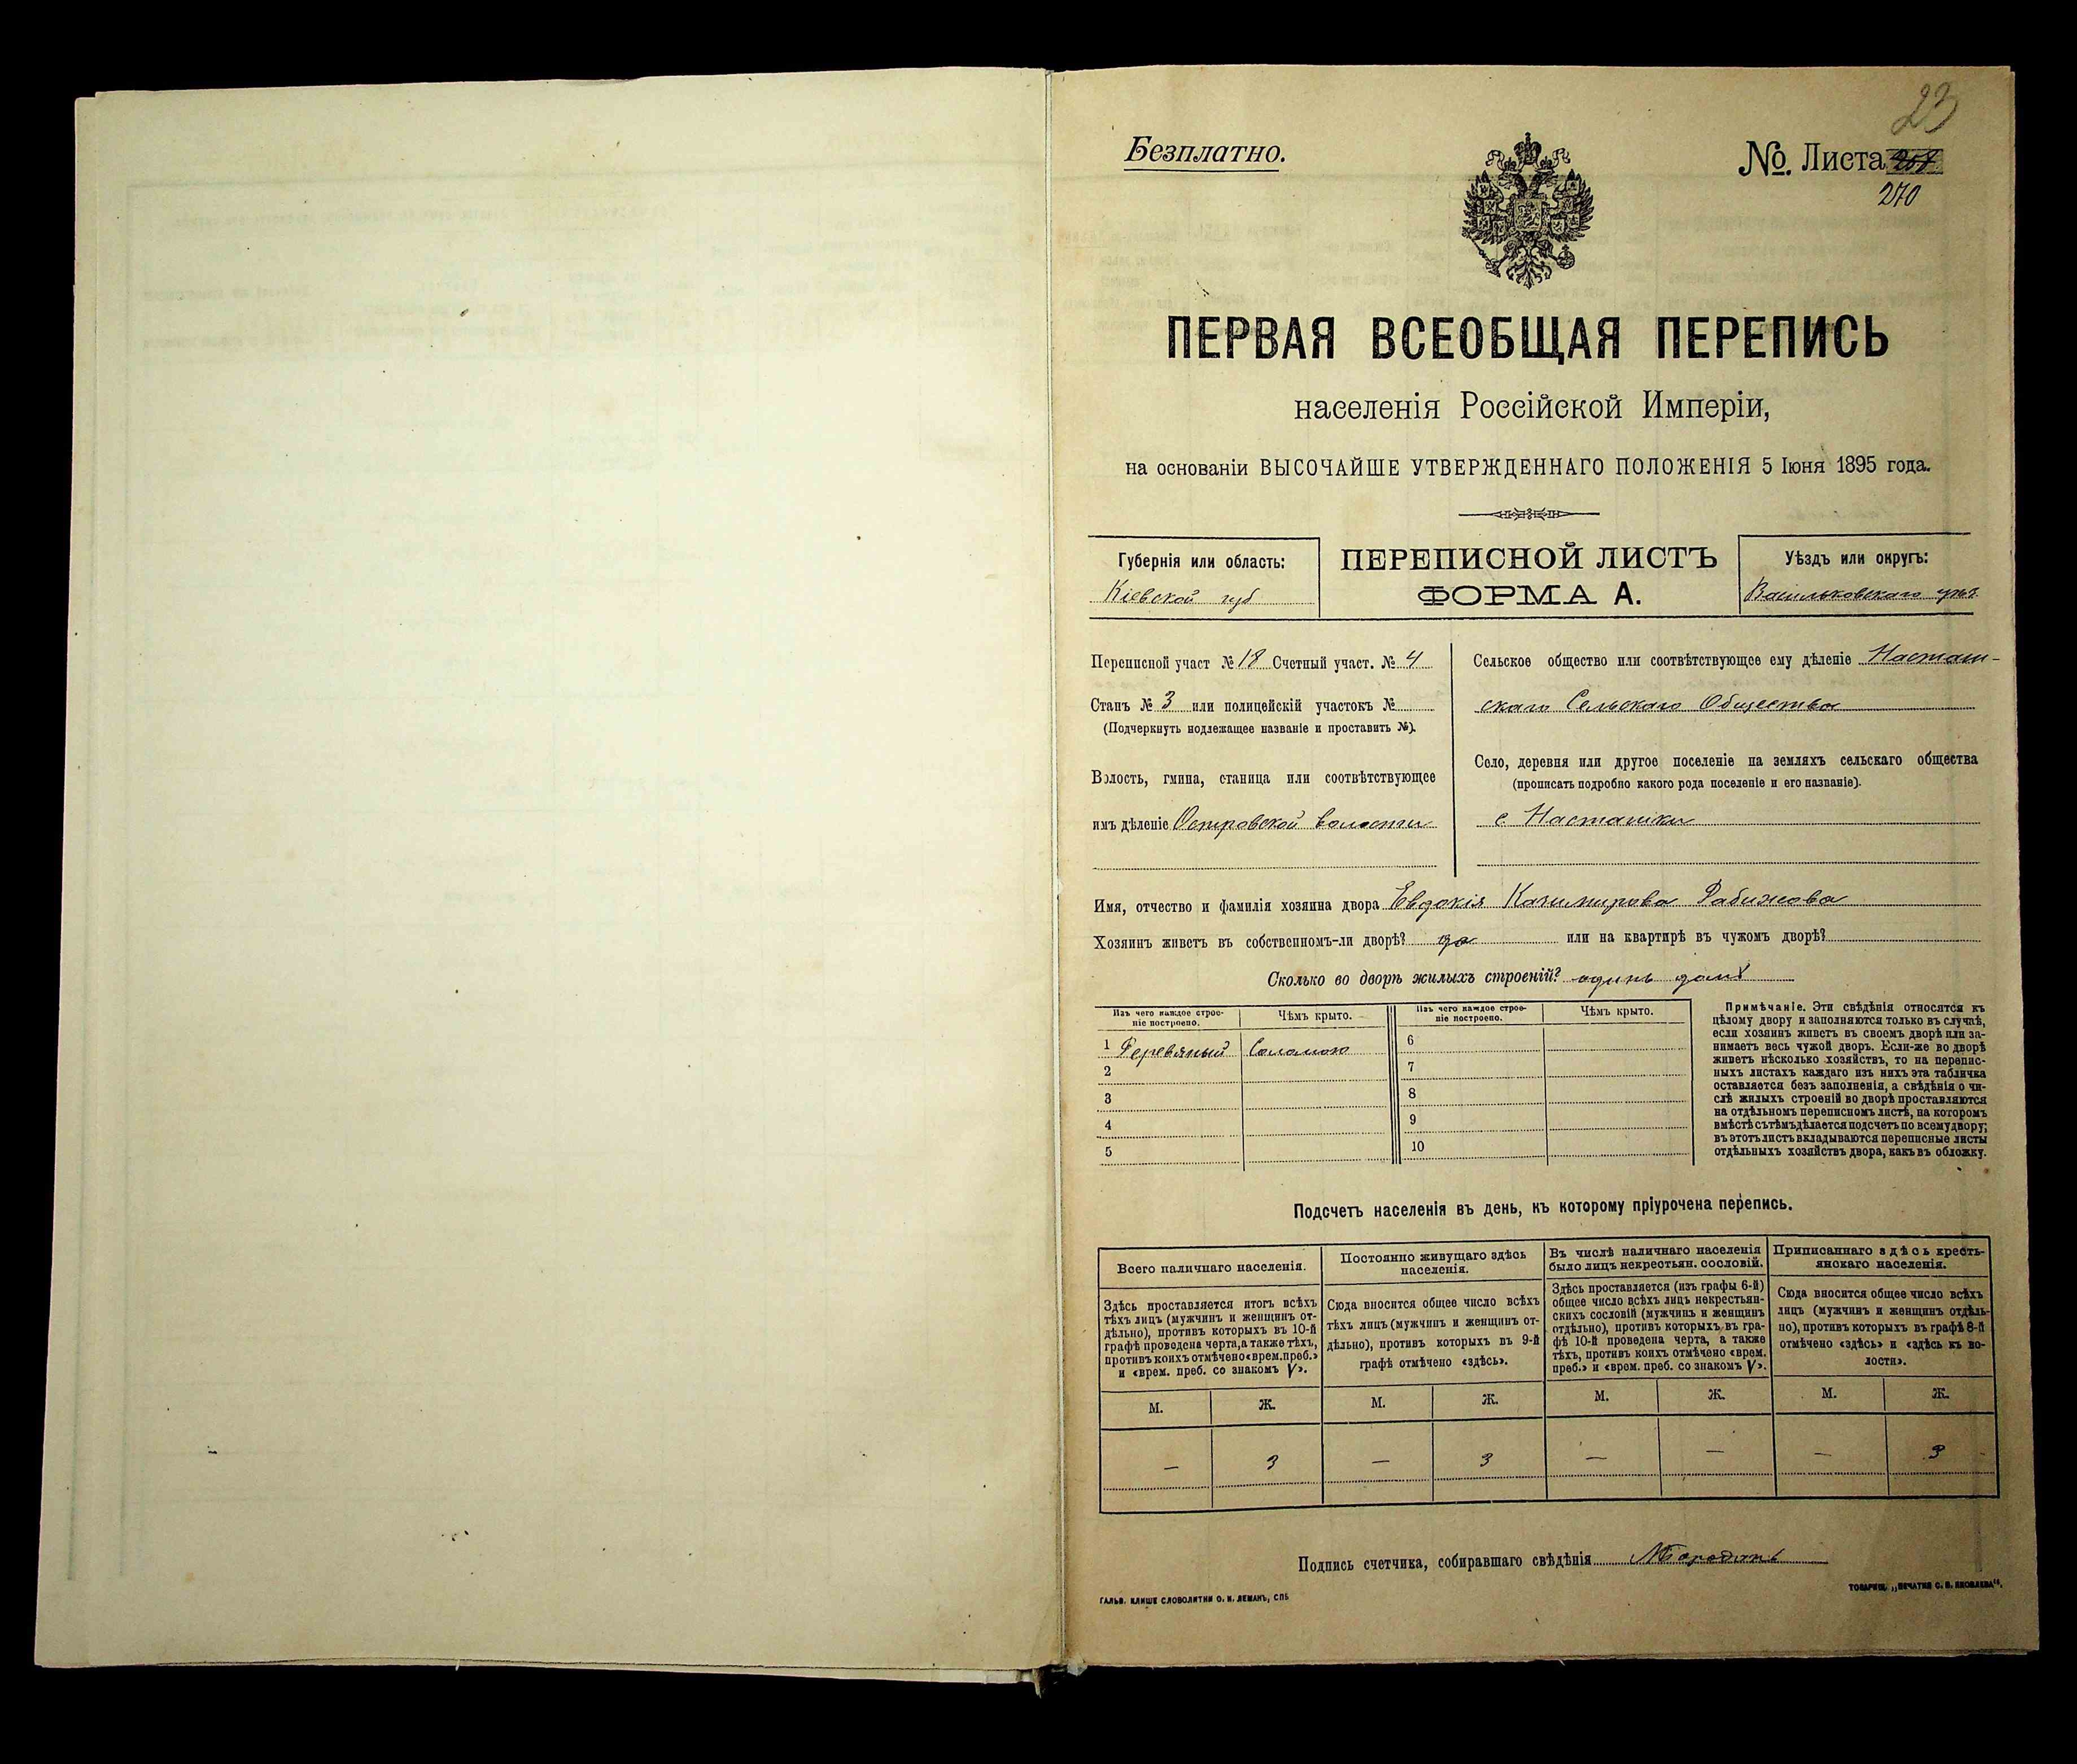 23
Безплатно.
№. Листа
270
ПЕРВАЯ ВСЕОБЩАЯ ПЕРЕПИСЬ
населенія Россійской Имперіи,
на основаніи ВЫСОЧАЙШЕ УТВЕРЖДЕННАГО ПОЛОЖЕНІЯ 5 Іюня 1895 года.
Губернія или область:
Кіевской губ
ПЕРЕПИСНОЙ ЛИСТЪ
ФОРМА А.
Уѣздъ или округъ:
Васильковскаго уѣз.
Переписной участ № 18 Счетный участ. № 4
Станъ № 3 или полицейскій участокъ №
(Подчеркнуть подлежащее названіе и проставить №).
Волость, гмина, станица или соотвѣтствующее
имъ дѣленіе Островской волости
Сельское общество или соотвѣтствующее ему дѣленіе Насташ-
скаго Сельскаго Общества
Село, деревня или другое поселеніе на земляхъ сельскаго общества
(прописать подробно какого рода поселеніе и его названіе).
с Насташки
Имя, отчество и фамилія хозяина двора Евдокія Казимирова Рабижова
Хозяинъ живетъ въ собственномъ-ли дворѣ? да или на квартирѣ въ чужомъ дворѣ?
Сколько во дворѣ жилыхъ строеній? одинъ домъ
Изъ чего каждое строе-
ніе построено.
Чѣмъ крыто.
Изъ чего каждое строе-
ніе построено.
Чѣмъ крыто.
1 Деревяный Соломою
2
3
4
5
6
7
8
9
10
Примѣчаніе. Эти свѣдѣнія относятся къ
цѣлому двору и заполняются только въ случаѣ,
если хозяинъ живетъ въ своемъ дворѣ или за-
нимаетъ весь чужой дворъ. Если-же во дворѣ
живетъ нѣсколько хозяйствъ, то на перепис-
ныхъ листахъ каждаго изъ нихъ эта табличка
оставляется безъ заполненія, а свѣдѣнія о чи-
слѣ жилыхъ строеній во дворѣ проставляются
на отдѣльномъ переписномъ листѣ, на которомъ
вмѣстѣ съ тѣмъ дѣлается подсчетъ по всему двору;
въ этотъ листъ вкладываются переписные листы
отдѣльныхъ хозяйствъ двора, какъ въ обложку.
Подсчетъ населенія въ день, къ которому пріурочена перепись.
Всего наличнаго населенія.
Здѣсь проставляется итогъ всѣхъ
тѣхъ лицъ (мужчинъ и женщинъ от-
дѣльно), противъ которыхъ въ 10-й
графѣ проведена черта, а также тѣхъ,
противъ коихъ отмѣчено «врем. преб.»
и «врем. преб. со знакомъ V».
Постоянно живущаго здѣсь
населенія.
Сюда вносится общее число всѣхъ
тѣхъ лицъ (мужчинъ и женщинъ от-
дѣльно), противъ которыхъ въ 9-й
графѣ отмѣчено «здѣсь».
Въ числѣ наличнаго населенія
было лицъ некрестьян. сословій.
Здѣсь проставляется (изъ графы 6-й)
общее число всѣхъ лицъ некрестьян-
скихъ сословій (мужчинъ и женщинъ
отдѣльно), противъ которыхъ въ гра-
фѣ 10-й проведена черта, а также
тѣхъ, противъ коихъ отмѣчено «врем.
преб.» и «врем. преб. со знакомъ V».
Приписаннаго здѣсь кресть-
янскаго населенія.
Сюда вносится общее число всѣхъ
лицъ (мужчинъ и женщинъ отдѣль-
но), противъ которыхъ въ графѣ 8-й
отмѣчено «здѣсь» и «здѣсь къ во-
лости».
М. Ж. М. Ж. М. Ж. М. Ж.
— 3 — 3 — — — 3
Подпись счетчика, собиравшаго свѣдѣнія
ГАЛЬВ. КЛИШЕ СЛОВОЛИТНИ О. И. ЛЕМАНЪ, СПБ
ТОВАРИЩ. „ПЕЧАТНЯ С. П. ЯКОВЛЕВА“.